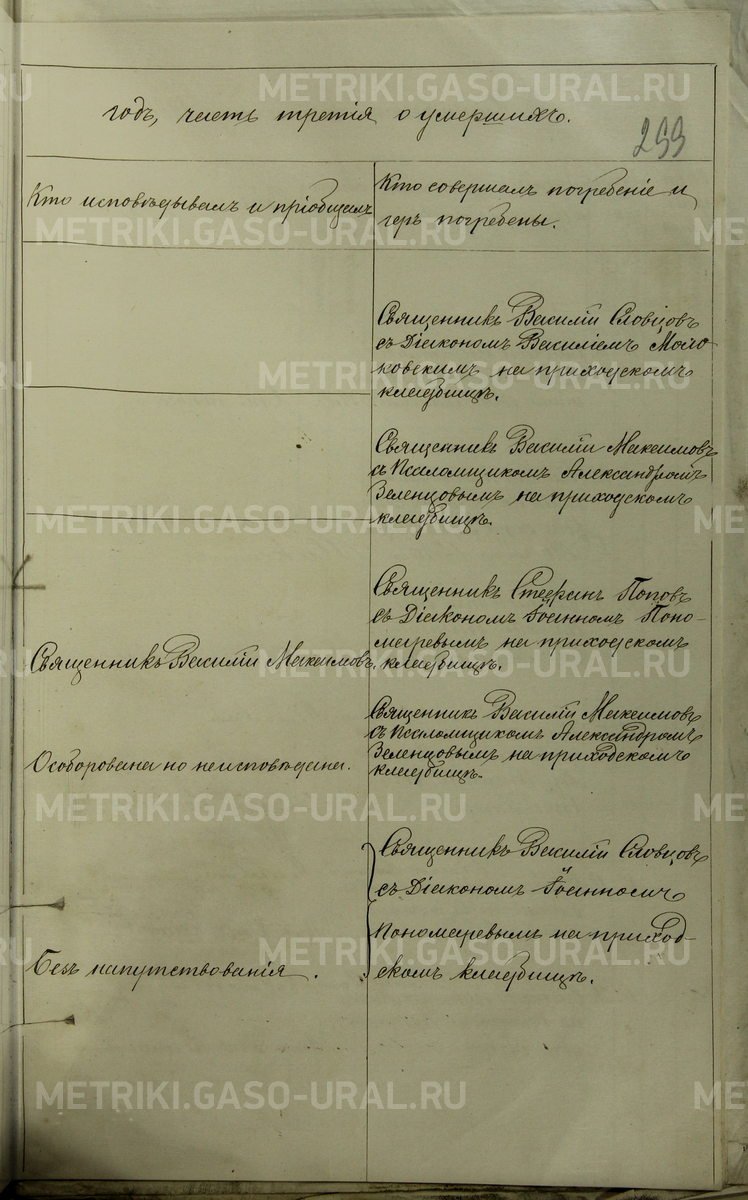 годъ, часть третія о умершихъ.
233
Кто исповѣдывалъ и пріобщалъ
Кто совершалъ погребеніе и
гдѣ погребены.
Священникъ Василій Словцовъ
съ Діакономъ Василіемъ Моло
ковскимъ на приходскомъ
кладбищѣ.
Священникъ Василій Максимовъ
съ Псаломщикомъ Александромъ
Зеленцовымъ на приходскомъ
кладбищѣ.
Священникъ Стефанъ Поповъ
съ Діакономъ Іоанномъ Поно-
маревымъ на приходскомъ
кладбищѣ.
Священникъ Василій Максимовъ.
Священникъ Василій Максимовъ
съ Псаломщикомъ Александромъ
Зеленцовымъ на приходскомъ
кладбищѣ.
Особорована но неисповѣдана.
Священникъ Василій Словцовъ
съ Діакономъ Іоанномъ
Пономаревымъ на приход-
скомъ кладбищѣ.
Безъ напутствованія.
METRIKI.GASO-URAL.RU